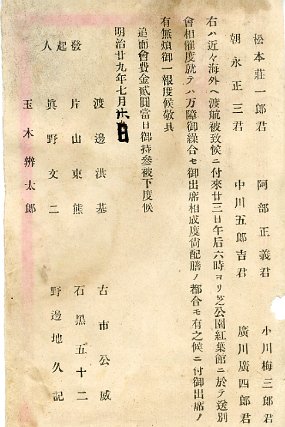 松本莊一郎君　阿部正義君　小川梅三郎君
朝永正三君　中川五郎吉君　廣川廣四郎君
右ハ近々海外ヘ渡航被致候ニ付來廿三日午后六時ヨリ芝公園紅葉館ニ於テ送別
會相催度就テハ万障御繰合セ御出席相成度尚配膳ノ都合モ有之候ニ付御出席ノ
有無煩御一報度候敬具
追而會費金貳圓當日御持參被下度候
明治廿九年七月
發起人
渡邊洪基　古市公威
片山東熊　石黑五十二
眞野文二　野邊地久記
玉木辨太郎